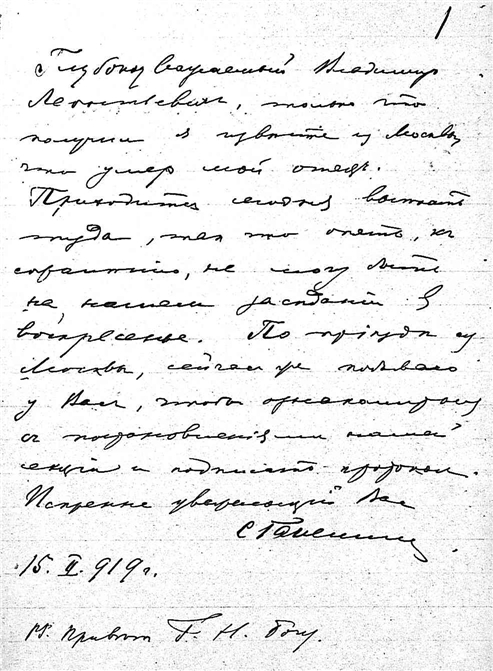 1
Глубокоуважаемый Владимир
Леонтьевич, только что
получил я известие из Москвы
что умер мой отец.
Приходится сегодня выехать
туда, так что опять, к
сожалению, не могу быть
на нашем заседании в
воскресенье. По приезде из
Москвы, сейчас же побываю
у Вас, чтобы ознакомиться
с постановлениями нашей
секции и подписать протокол.
Искренне уважающий Вас
С Ганешин
15. II. 919 г.
PS. Привет Г. Н. Богу.